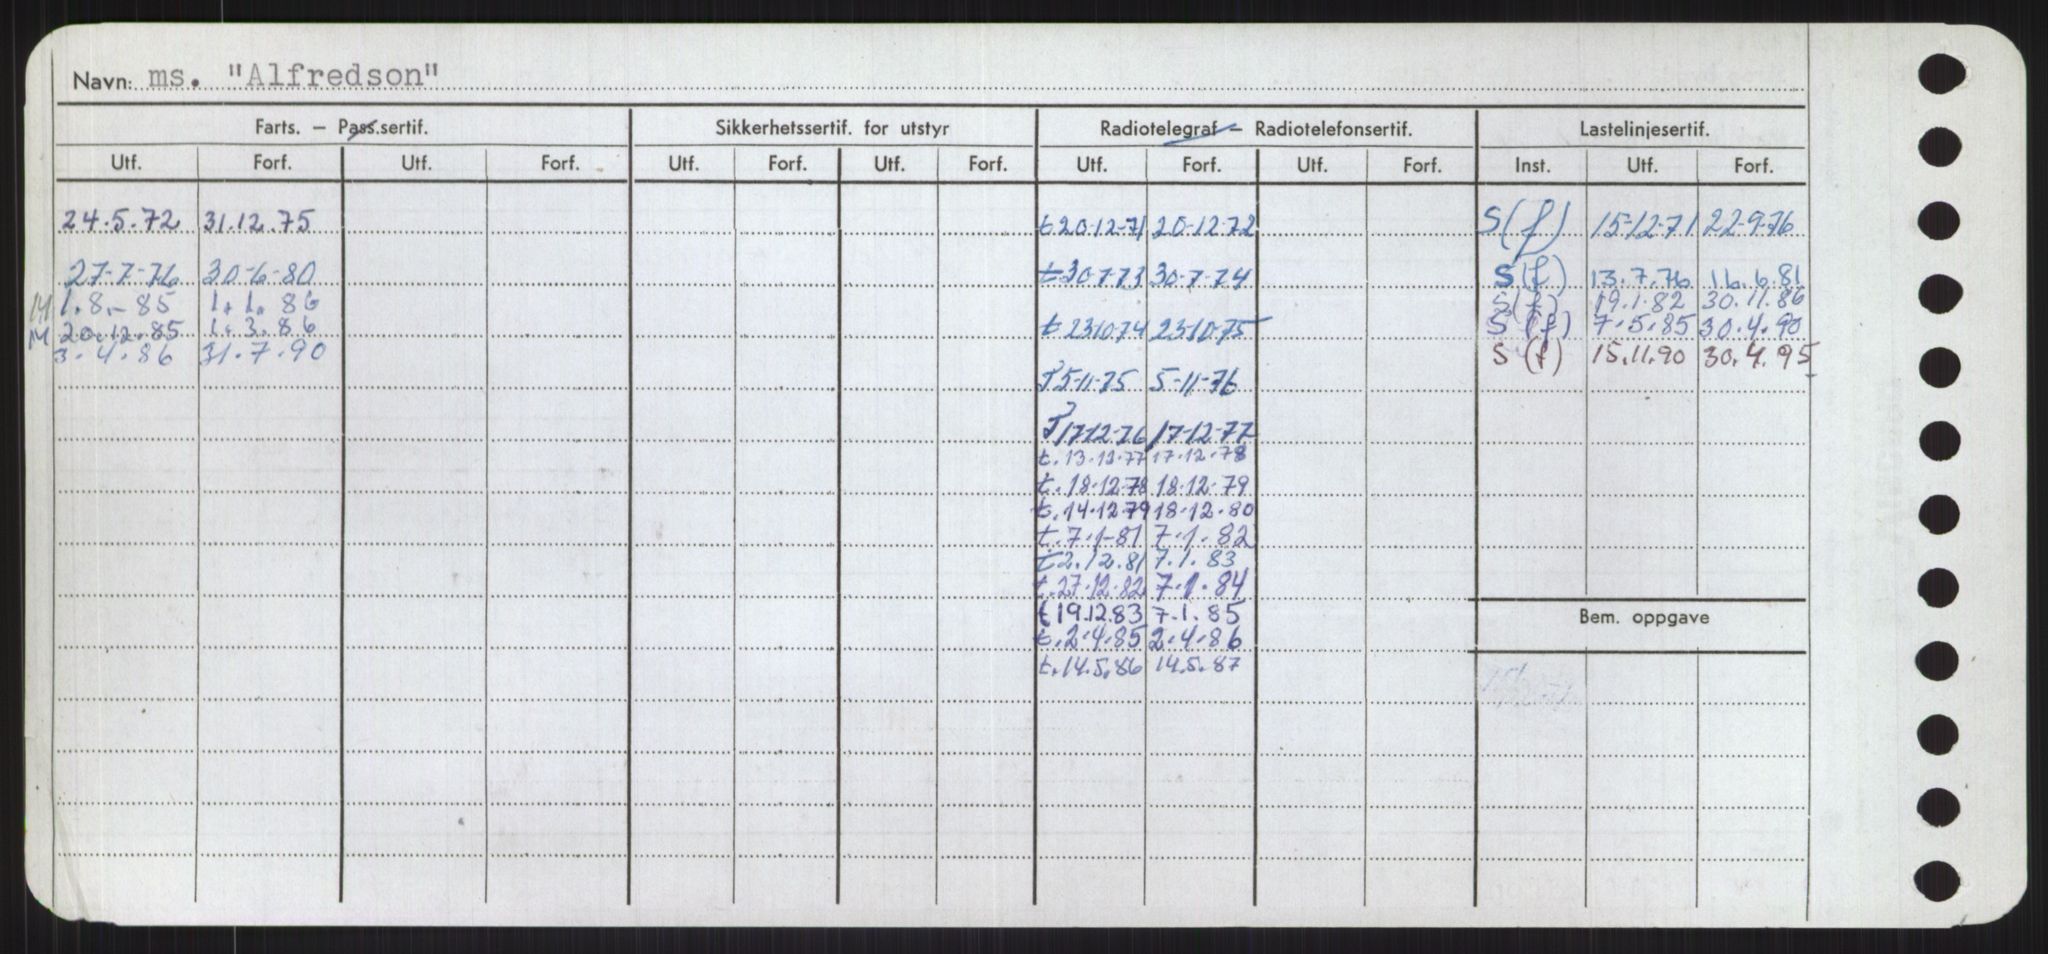 Navn: ms. "Alfredson"
Farts. – Pass.sertif. Sikkerhetssertif. for utstyr Radiotelegraf – Radiotelefonsertif. Lastelinjesertif.
Utf. Forf. Utf. Forf. Utf. Forf. Utf. Forf. Utf. Forf. Utf. Forf. Inst. Utf. Forf.
24.5.72 31.12.75 t 20-12-71 20-12-72 S(f) 15-12-71 22-9-76
27-7-76 30-6-80 t 30-7-73 30-7-74 S(f) 13.7.76 16.6.81
M 1.8.-85 1.1.86 S(f) 19.1.82 30.11.86
M 20.12.85 1.3.86 t 23.10.74 23.10.75 S(f) 7.5.85 30.4.90
3.4.86 31.7.90 S(f) 15.11.90 30.4.95
T 5-11-75 5-11-76
T 17-12-76 17-12-77
t. 13.12.77 17.12.78
t. 18.12.78 18.12.79
t. 14.12.79 18.12.80
t. 7.1-81 7.1.82
t 2.12.81 7.1.83
t. 27.12.82 7.1.84
t 19.12.83 7.1.85
Bem. oppgave
t. 2.4.85 2.4.86
t. 14.5.86 14.5.87